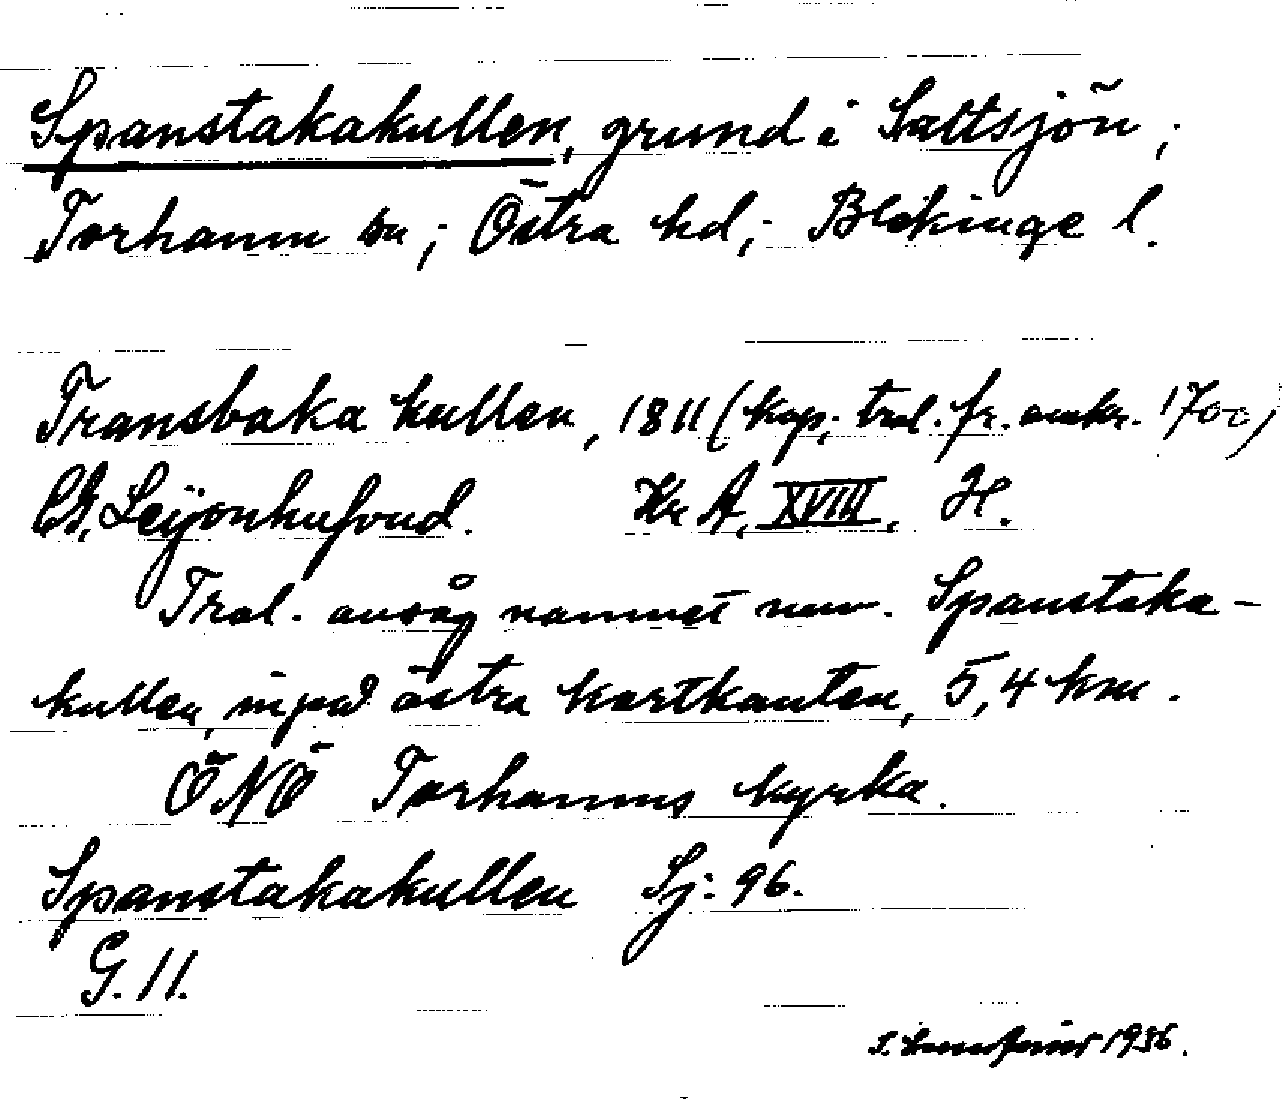 Spanstakakullen, grund i Saltsjön;
Torhamn sn; Östra hd; Blekinge l.
Transbaka kullen, 1811 (kop; trol. fr. omkr. 1700)
CG. Leijonhufvud. Kr A. XVIII. H.
Trol. avsåg namnet nuv. Spanstaka-
kullen, inpå östra kortkanten, 5,4 km.
ÖNÖ Torhamns kyrka.
Spanstakakullen Sj: 96.
G. 11.
1936.